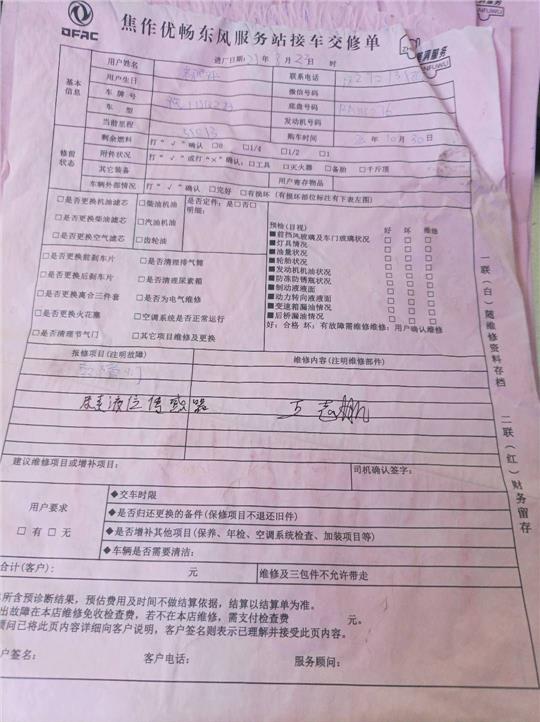 DFAC
焦作优畅东风服务站接车交修单
服务
进厂日期: 时
基本信息
用户姓名 联系电话
用户生日 微信号码
车牌号 底盘号码
车型 发动机号码
当前里程 购车时间 年10月30日
修前状态
剩余燃料 打“√”确认 □0 □1/4 □1/2 □1
附件状况 打“√”或打“×”确认:□工具 □灭火器 □备胎 □千斤顶
其它装备 用户寄存物品
车辆外部情况 打“√”确认 □完好 □有损坏(有损坏部位标注有下表左图)
□是否更换机油滤芯 □柴油机油 是否定件:是□否□
明细:
□是否更换柴油滤芯 □汽油机油
□是否更换空气滤芯 □齿轮油
□是否更换前刹车片 □是否清理排气筒
□是否更换后刹车片 □是否清理尿素箱
□是否更换离合三件套 □是否为电气维修
□是否更换火花塞 □空调系统是否正常运行
□是否清理节气门 □其它项目维修及更换
预检(目视) 好 坏 维修
■前挡风玻璃及车门玻璃状况 □ □ □
■灯具情况 □ □ □
■油量状况 □ □ □
■轮胎状况 □ □ □
■发动机机油状况 □ □ □
■防冻防锈瓶状况 □ □ □
■制动液液面 □ □ □
■动力转向液液面 □ □ □
■变速箱漏油情况 □ □ □
■后桥漏油情况 □ □ □
好:合格 坏:有故障需维修维修:用户确认维修
报修项目(注明故障) 维修内容(注明维修部件)
尿素液位传感器 王志鹏
建议维修项目或增补项目: 司机确认签字:
用户要求
□有 □无
◆交车时限
◆是否归还更换的备件(保修项目不退还旧件)
◆是否增补其他项目(保养、年检、空调系统检查、加装项目等)
◆车辆是否需要清洁:
合计(客户): 元 维修及三包件不允许带走
所含预诊断结果,预估费用及时间不做结算依据,结算以结算单为准。
出故障在本店维修免收检查费,若不在本店维修,需支付检查费 元。
问已将此页内容详细向客户说明,客户签名则表示已理解并接受此页内容。
户签名: 客户电话: 服务顾问:
一联(白)随维修资料存档
二联(红)财务留存